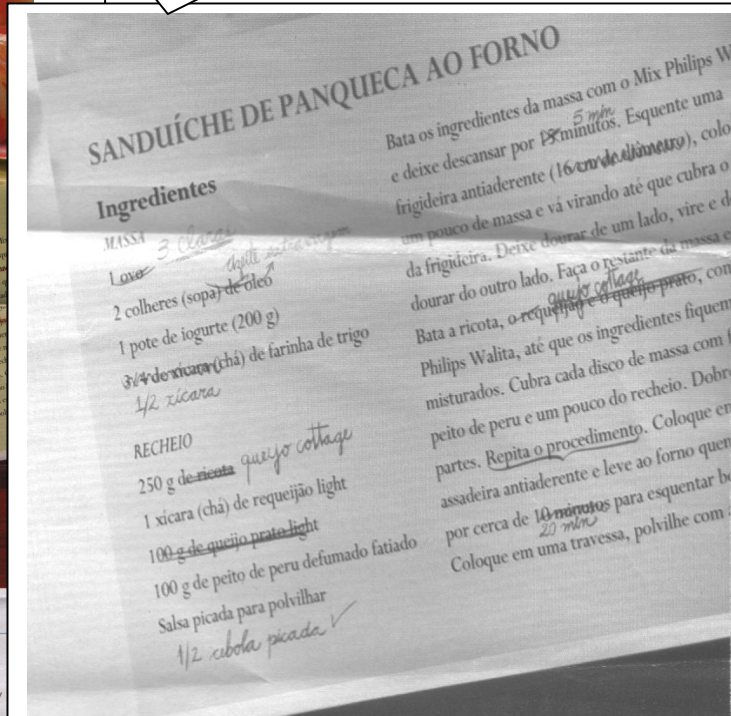 SANDUÍCHE DE PANQUECA AO FORNO
Ingredientes
MASSA 3 claras
1 ovo
azeite extra virgem
2 colheres (sopa) de óleo
1 pote de iogurte (200 g)
3/4 de xícara (chá) de farinha de trigo
1/2 xícara
RECHEIO
250 g de ricota queijo cottage
1 xícara (chá) de requeijão light
100 g de queijo prato light
100 g de peito de peru defumado fatiado
Salsa picada para polvilhar
1/2 cebola picada ✓
Bata os ingredientes da massa com o Mix Philips W
5 min
e deixe descansar por minutos. Esquente uma
frigideira antiaderente (16 cm de diâmetro), colo
um pouco de massa e vá virando até que cubra o
da frigideira. Deixe dourar de um lado, vire e d
dourar do outro lado. Faça o restante da massa
queijo cottage
Bata a ricota, o requeijão e o queijo prato, com
Philips Walita, até que os ingredientes fiquem
misturados. Cubra cada disco de massa com
peito de peru e um pouco do recheio. Dobr
partes. Repita o procedimento. Coloque em
assadeira antiaderente e leve ao forno quen
por cerca de 10 minutos para esquentar be
20 min
Coloque em uma travessa, polvilhe com